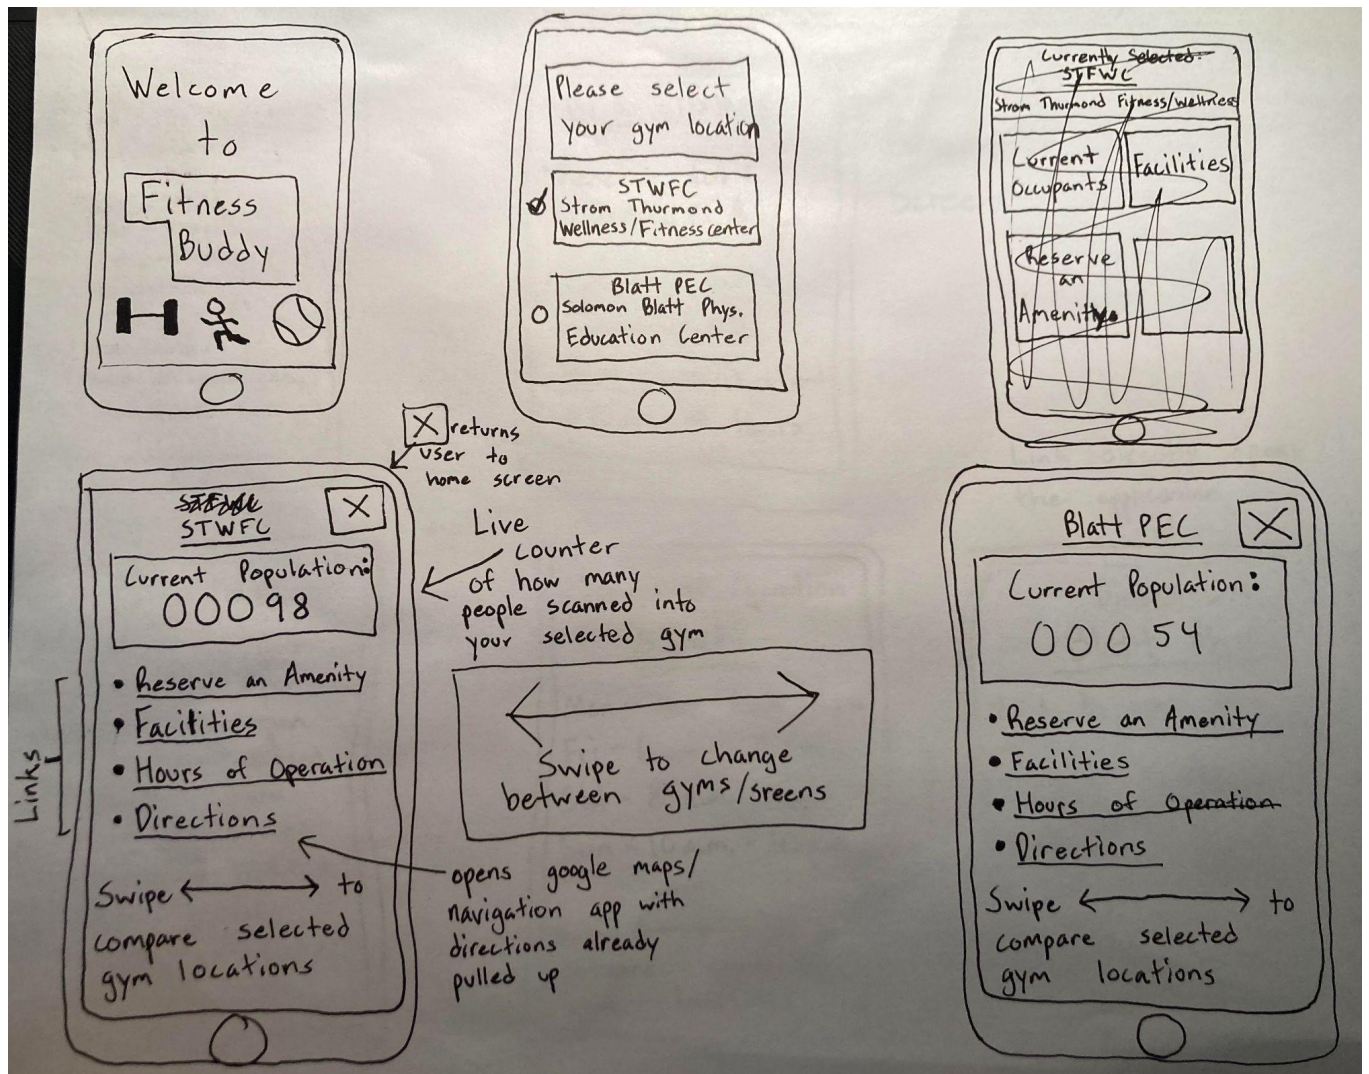 Welcome
to
Fitness
Buddy
Please select
your gym location
STWFC
Strom Thurmond
Wellness/Fitness center
Blatt PEC
Solomon Blatt Phys.
Education Center
Currently Selected:
STFWC
Strom Thurmond Fitness/Wellness
Current
Occupants
Facilities
Reserve
an
Amenity
X returns
user to
home screen
STWFC
X
Current Population:
00098
• Reserve an Amenity
• Facilities
• Hours of Operation
• Directions
Links
Swipe ↔ to
compare selected
gym locations
Live
counter
of how many
people scanned into
your selected gym
Swipe to change
between gyms/sreens
opens google maps/
navigation app with
directions already
pulled up
Blatt PEC
X
Current Population:
00054
• Reserve an Amenity
• Facilities
• Hours of Operation
• Directions
Swipe ↔ to
compare selected
gym locations